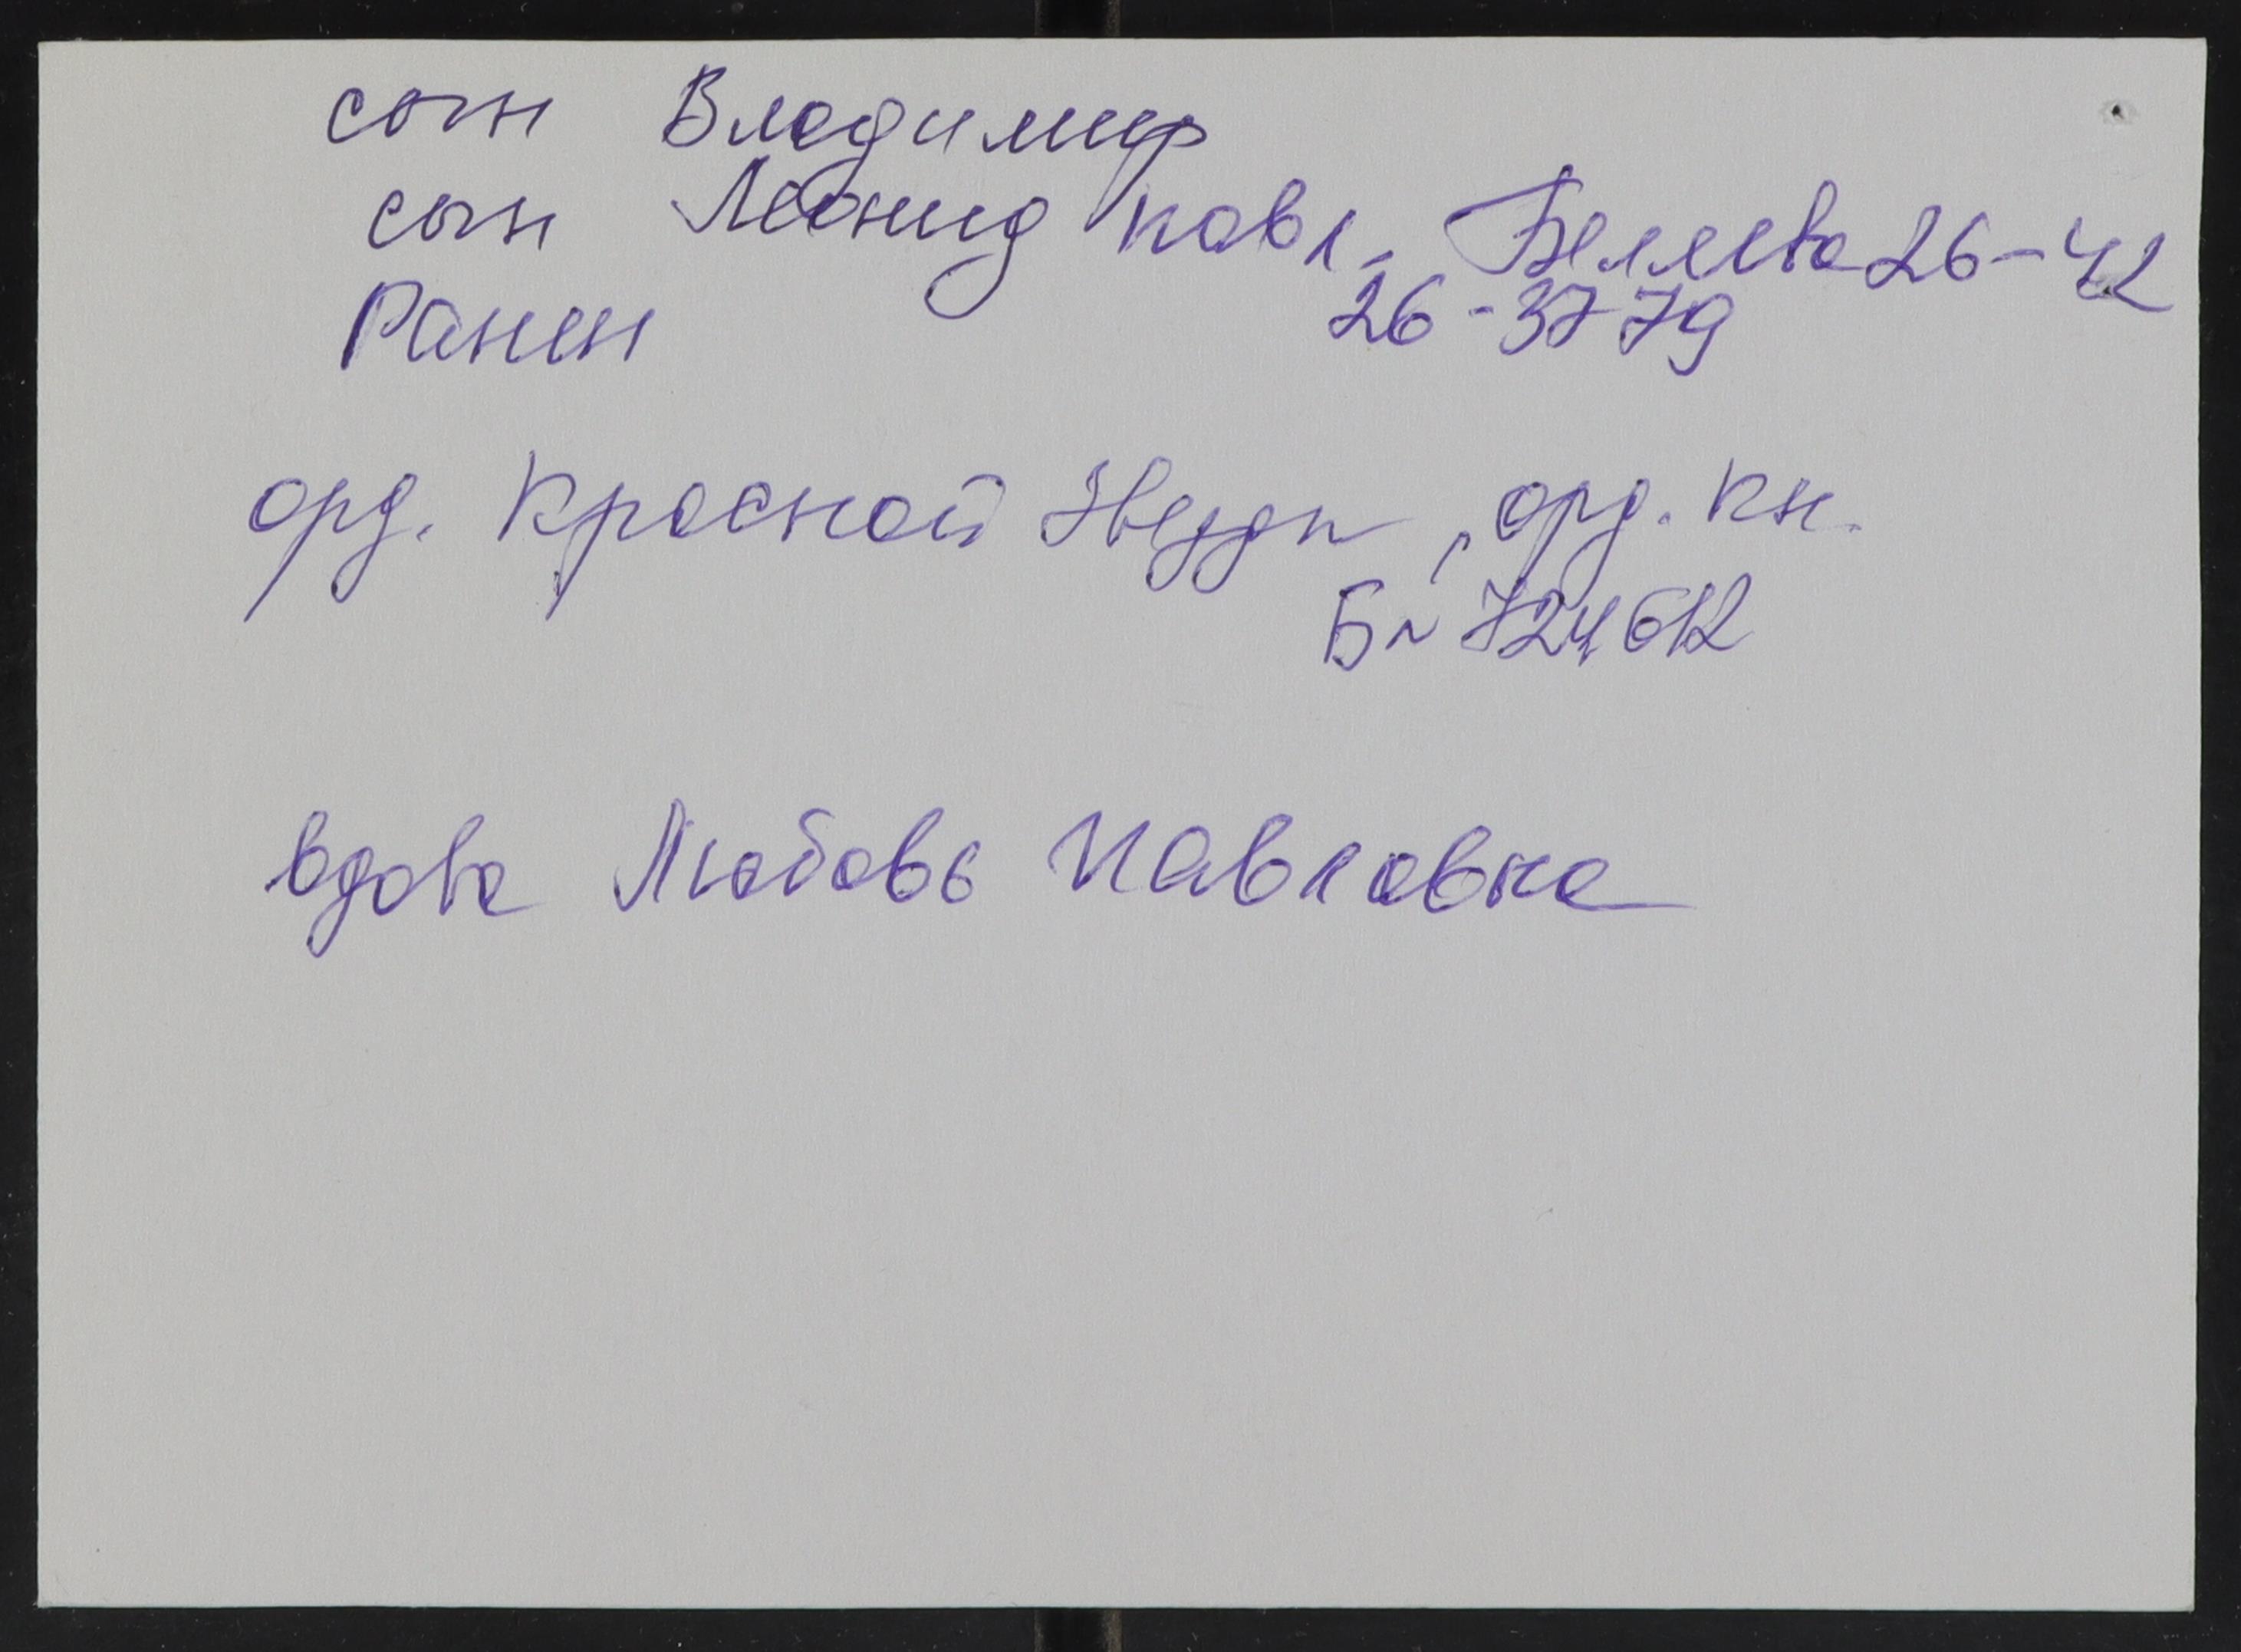 сын Владимир
сын Леонид Павл. Беляева 26-42
Ранен 26-3779
орд. Красной Звезды, орд. кн.
Б № 724612
вдова Любовь Павловна